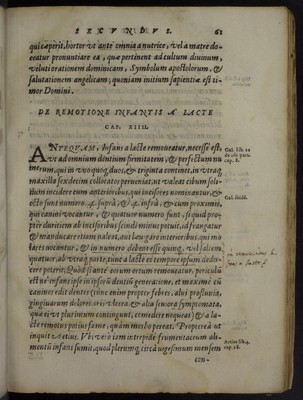 SECVNDVS. 61
qui cæperit, hortor vt ante omnia a nutrice, vel a matre do-
ceatur pronuntiare ea, quæ pertinent ad cultum diuinum,
veluti orationem dominicam, Symbolum apostolorum, &
salutationem angelicam; quoniam initium sapientiæ est ti-
mor Domini.
DE REMOTIONE INFANTIS A LACTE
CAP. XIIII.
ANTEQVAM, Infans a lacte remoueatur, necesse est,
vt ad omnium dentium firmitatem, & perfectum nu-
merum, qui in viro quinq; duos, & triginta continet, in vtraq;
maxilla sexdecim collocatos perueniat, ni valeat cibum soli-
incidere cum anterioribus, qui incisores nominantur, &
octo sunt numero 4 supra, & 4 infra, & cum proximis,
qui canini vocantur, & quatuor numero sunt, siquid pro-
pter duritiem ab inciforibus scindi minus potuit, id frangatur
& manducare etiam valeat, aut lęuigare interioribus, qui mo
lares vocantur, & in numero debent esse quinq; vel saltem
quatuor ab vtraq; parte; tunc a lacte ex tempore ipsum dedo-
cere poteris; Quod si ante eorum ortum remoueatur, periculũ
est ne infans ipse in ipsorũ dentiũ generatione, et maxime cũ
canini edit dentes (tunc enim propter febres, alui profluuia,
gingiuarum dolores, oris vlcera, & alia seuiora symptomata,
quæ ei vt plurimum contingunt, comedere nequeat) & a la-
cte remotus potius fame, quàm morbo pereat. Propterea ut
inquit Aetius. Vbi vero iam intrepidè frumentaceum ali-
mentũ infans sumit, quod plerumq; circà uigesimum mensem
con-
Gal. lib. 11
de vsu parti.
cap. 8.
Gal. ibidẽ.
Aetius lib. 4.
cap. 28.